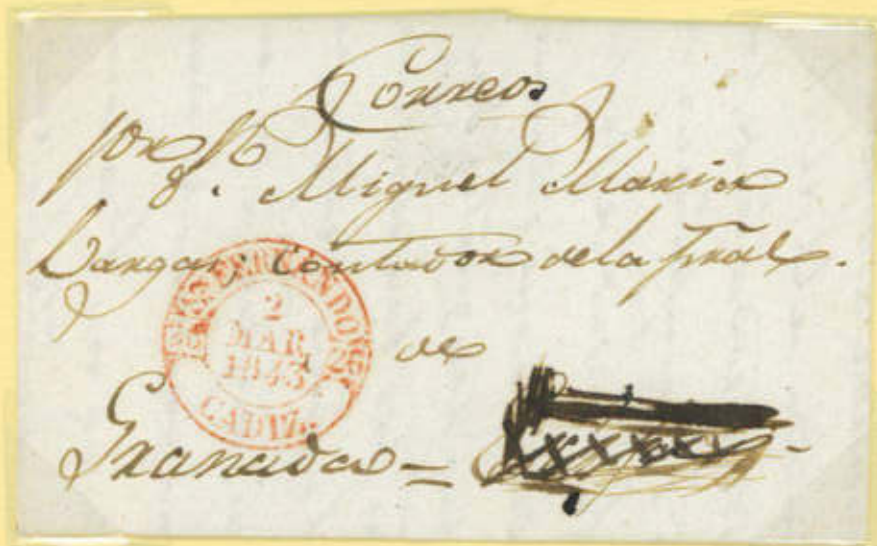 Correos
por
Dn. Miguel Maria
Vargas, Contador de la Pral.
de
Granada =
SN. FERNANDO
2
MAR
1843
CADIZ.